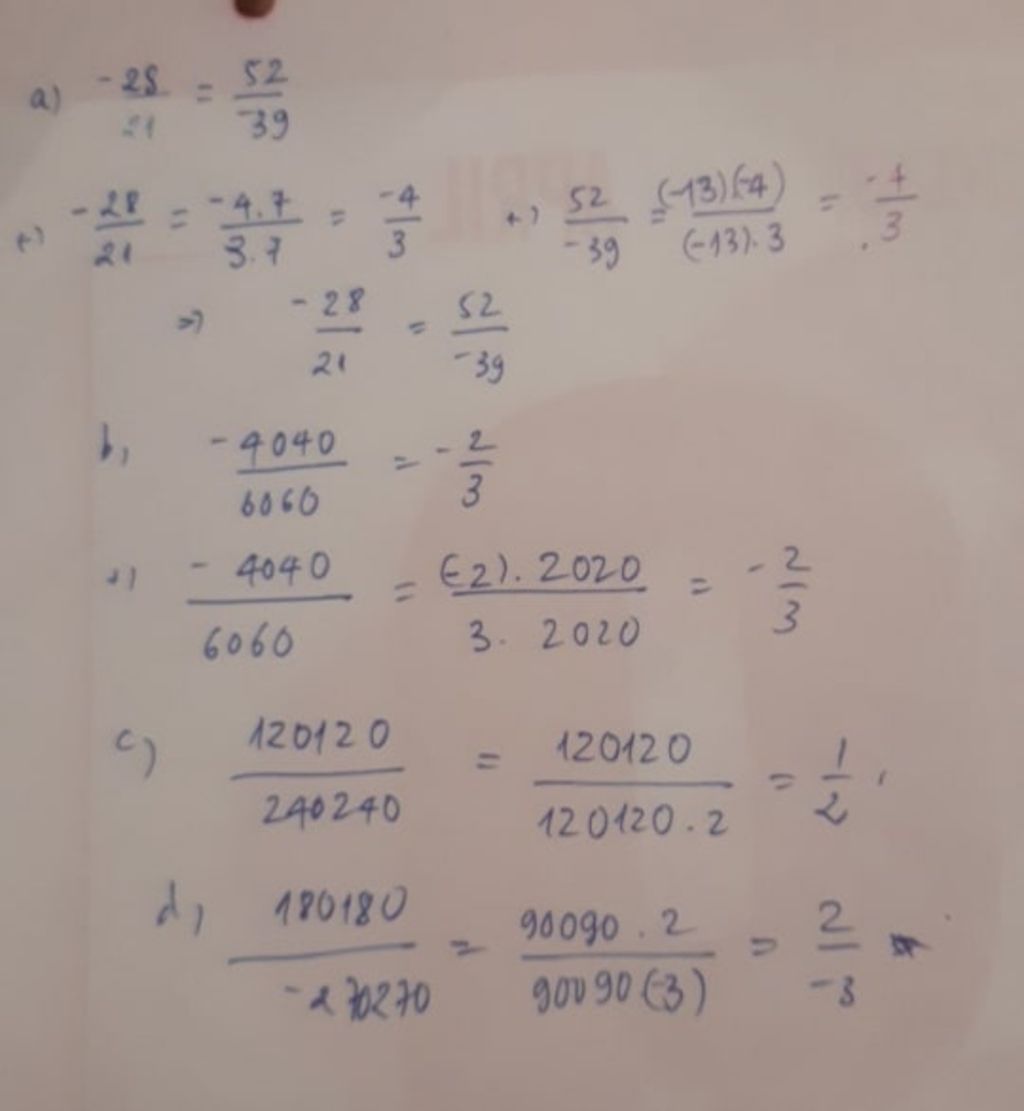 a) -28/21 = 52/-39
+) -28/21 = -4.7/3.7 = -4/3 +) 52/-39 = (-13)(-4)/(-13).3 = -4/3
=> -28/21 = 52/-39
b, -4040/6060 = -2/3
+) -4040/6060 = (-2).2020/3.2020 = -2/3
c) 120120/240240 = 120120/120120.2 = 1/2,
d, 180180/-270270 = 90090.2/90090(-3) = 2/-3